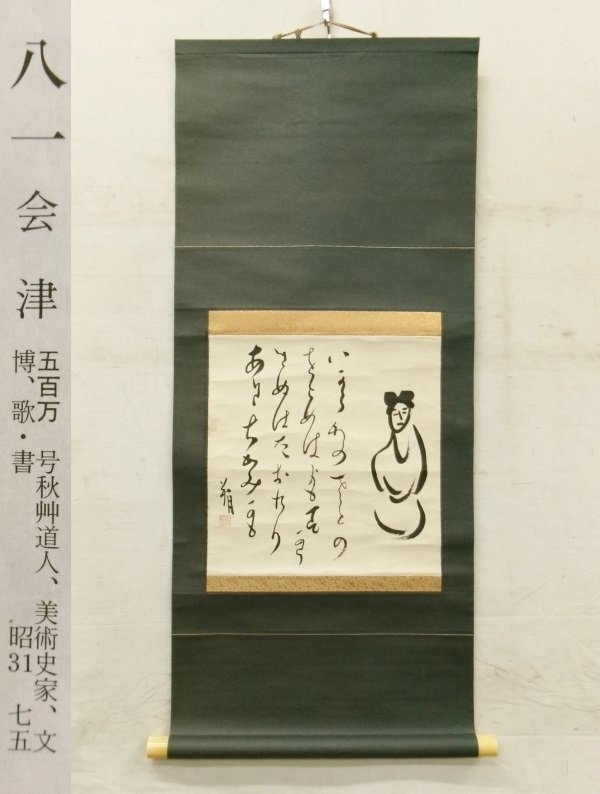 八一会津
五百万 号秋艸道人、美術史家、文
博、歌・書 昭31 七五
いかるかのさとの
をとめはよもすから
きぬはたおれり
あきちかみかも